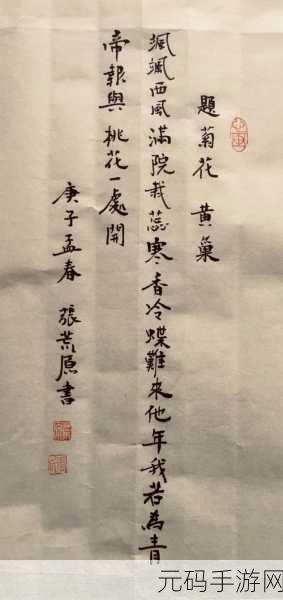 題菊花 黃巢
颯颯西風滿院栽蕊寒香冷蝶難來他年我若為青
帝報與桃花一處開
庚子孟春 張荒原書
元码手游网